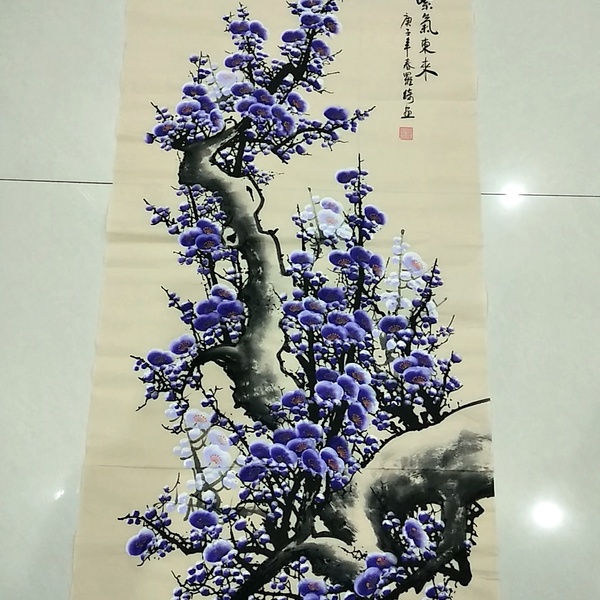 紫氣東來
庚子年春羅綺畫